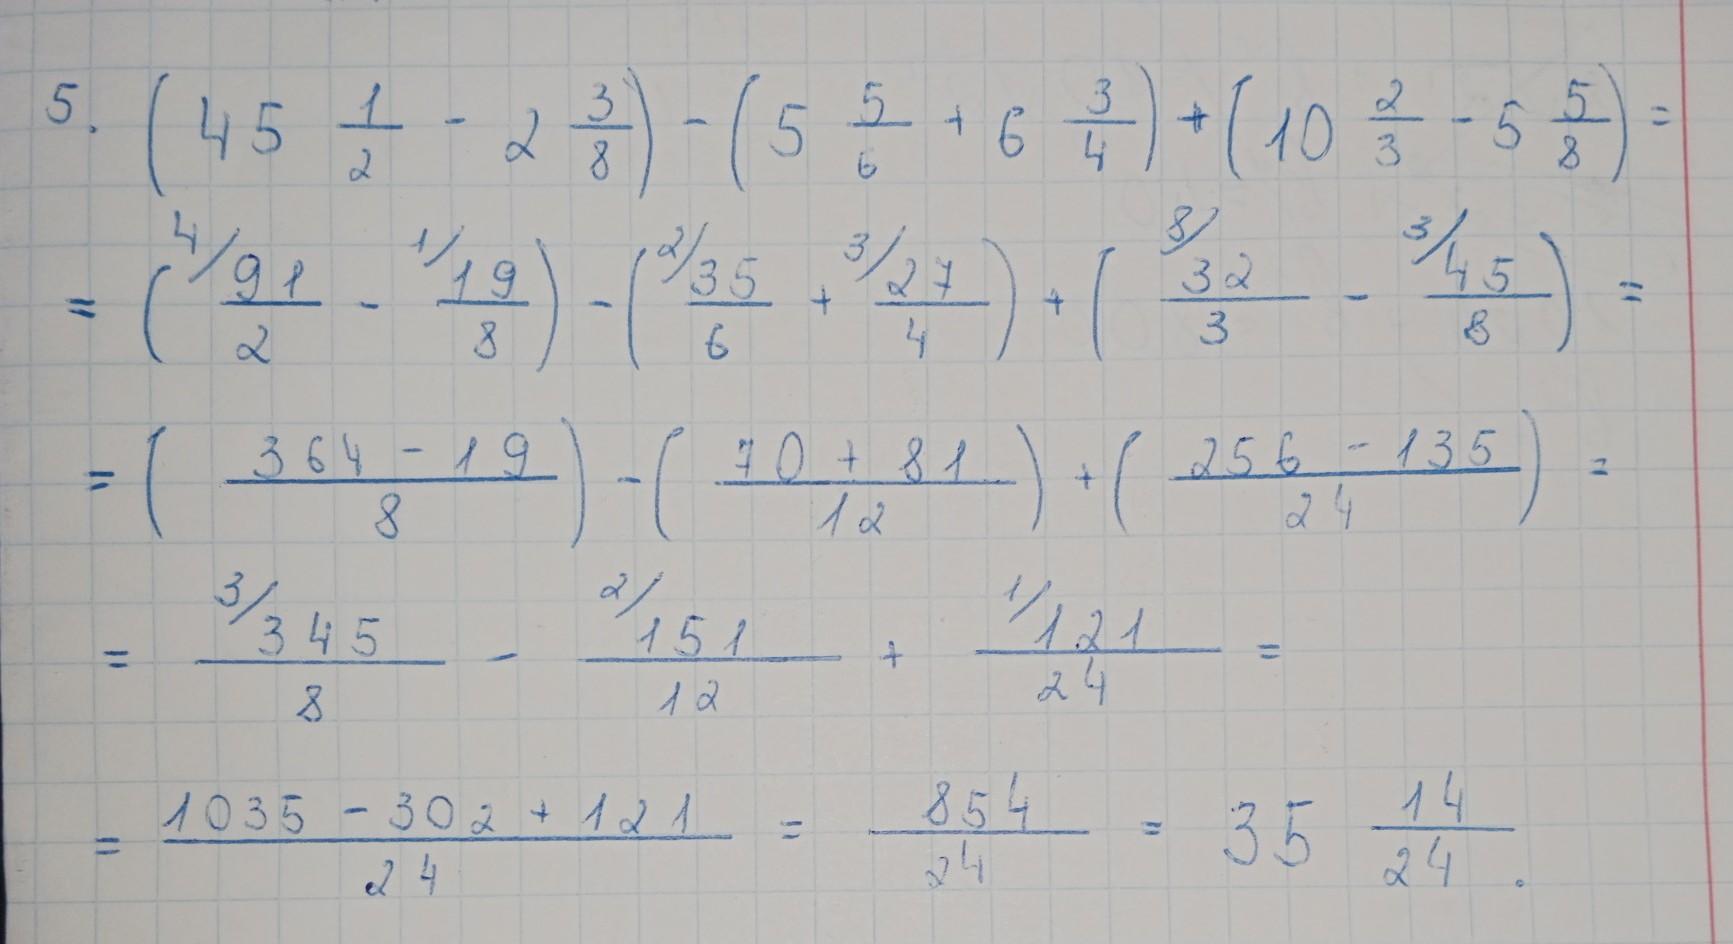 5. (45 1/2 - 2 3/8) - (5 5/6 + 6 3/4) + (10 2/3 - 5 5/8) =
= (4/ 91/2 - 1/ 19/8) - (2/ 35/6 + 3/ 27/4) + (8/ 32/3 - 3/ 45/8) =
= ((364 - 19)/8) - ((70 + 81)/12) + ((256 - 135)/24) =
= 3/ 345/8 - 2/ 151/12 + 1/ 121/24 =
= (1035 - 302 + 121)/24 = 854/24 = 35 14/24.